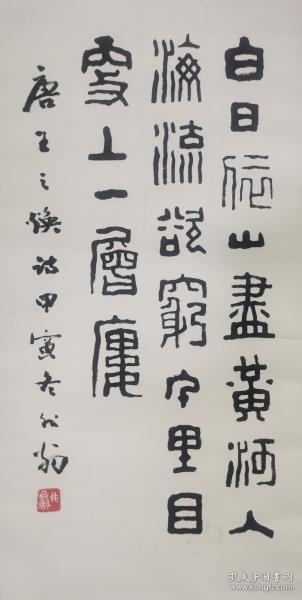 白日依山盡黃河入
海流欲窮千里目
更上一層廔
唐王之煥詩甲寅冬翁
孔夫子旧书网